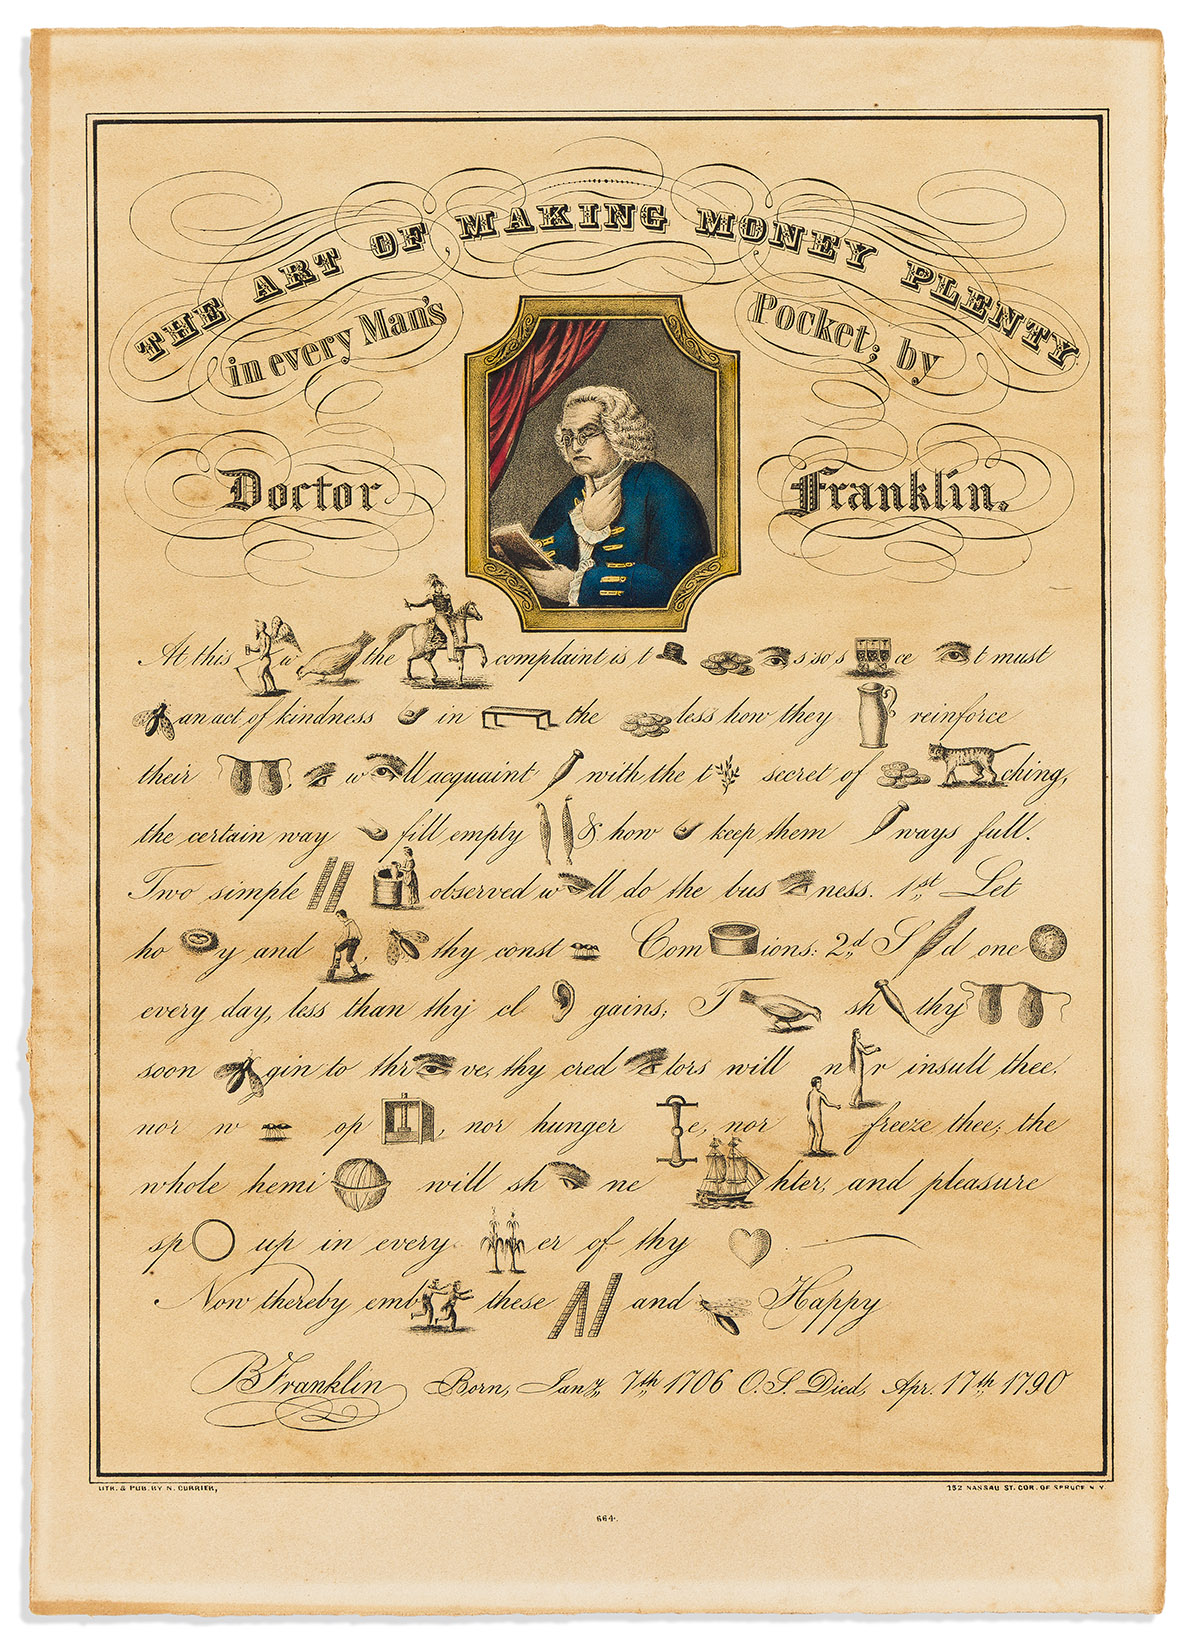 THE ART OF MAKING MONEY PLENTY
in every Man's Pocket; by
Doctor Franklin.
At this w the complaint is t s'so's ce t must
an act of kindness in the less how they reinforce
their , w ll acquaint with the t secret of ching,
the certain way fill empty & how keep them ways full.
Two simple observed w ll do the bus ness. 1st Let
ho y and , thy const Com ions: 2d S d one
every day, less than thy cl gains; T sh thy
soon gin to thr ve, thy cred tors will n r insult thee,
nor w op , nor hunger e, nor freeze thee; the
whole hemi will sh ne hter, and pleasure
sp up in every er of thy
Now thereby emb these and Happy
B Franklin Born, Jany. 7th 1706 O.S. Died, Apr. 17th 1790
LITH. & PUB. BY N. CURRIER,
152 NASSAU ST. COR. OF SPRUCE N.Y.
664.